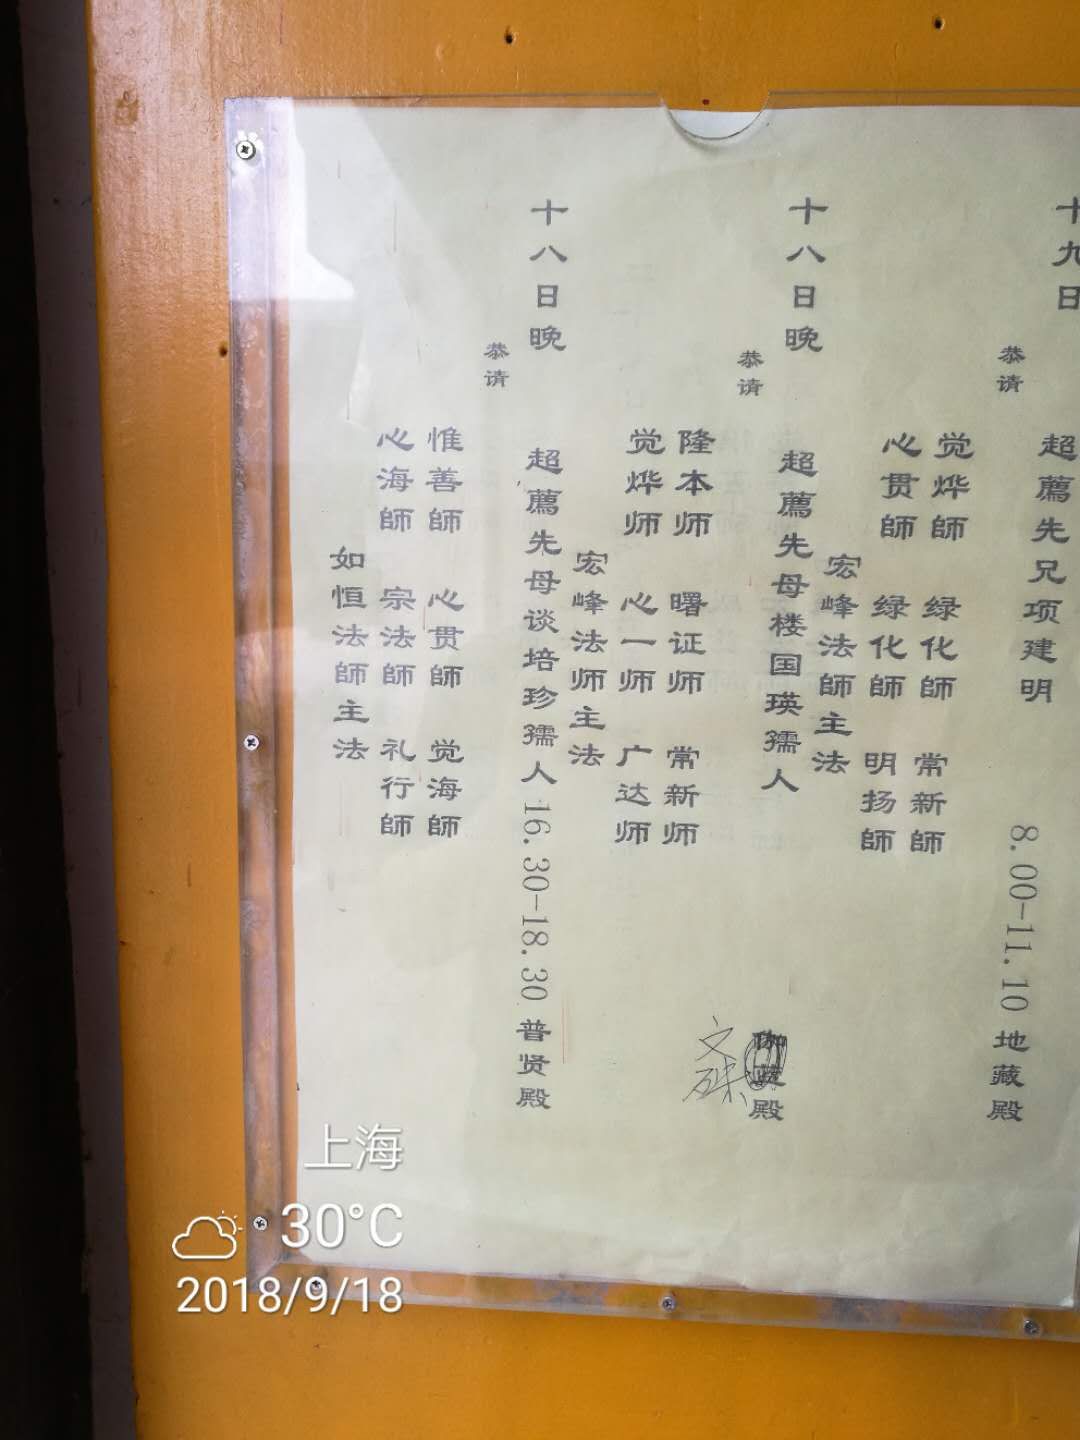 十九日 超薦先兄项建明 8.00-11.10 地藏殿
恭请
觉烨師 绿化師 常新師
心贯師 绿化師 明扬師
宏峰法師主法
十八日晚 超薦先母楼国瑛孺人 伽蓝殿
文殊
恭请
隆本师 曙证师 常新师
觉烨师 心一师 广达师
宏峰法师主法
十八日晚 超薦先母谈培珍孺人 16.30-18.30 普贤殿
恭请
惟善師 心贯師 觉海師
心海師 宗法師 礼行師
如恒法師主法
上海
30°C
2018/9/18